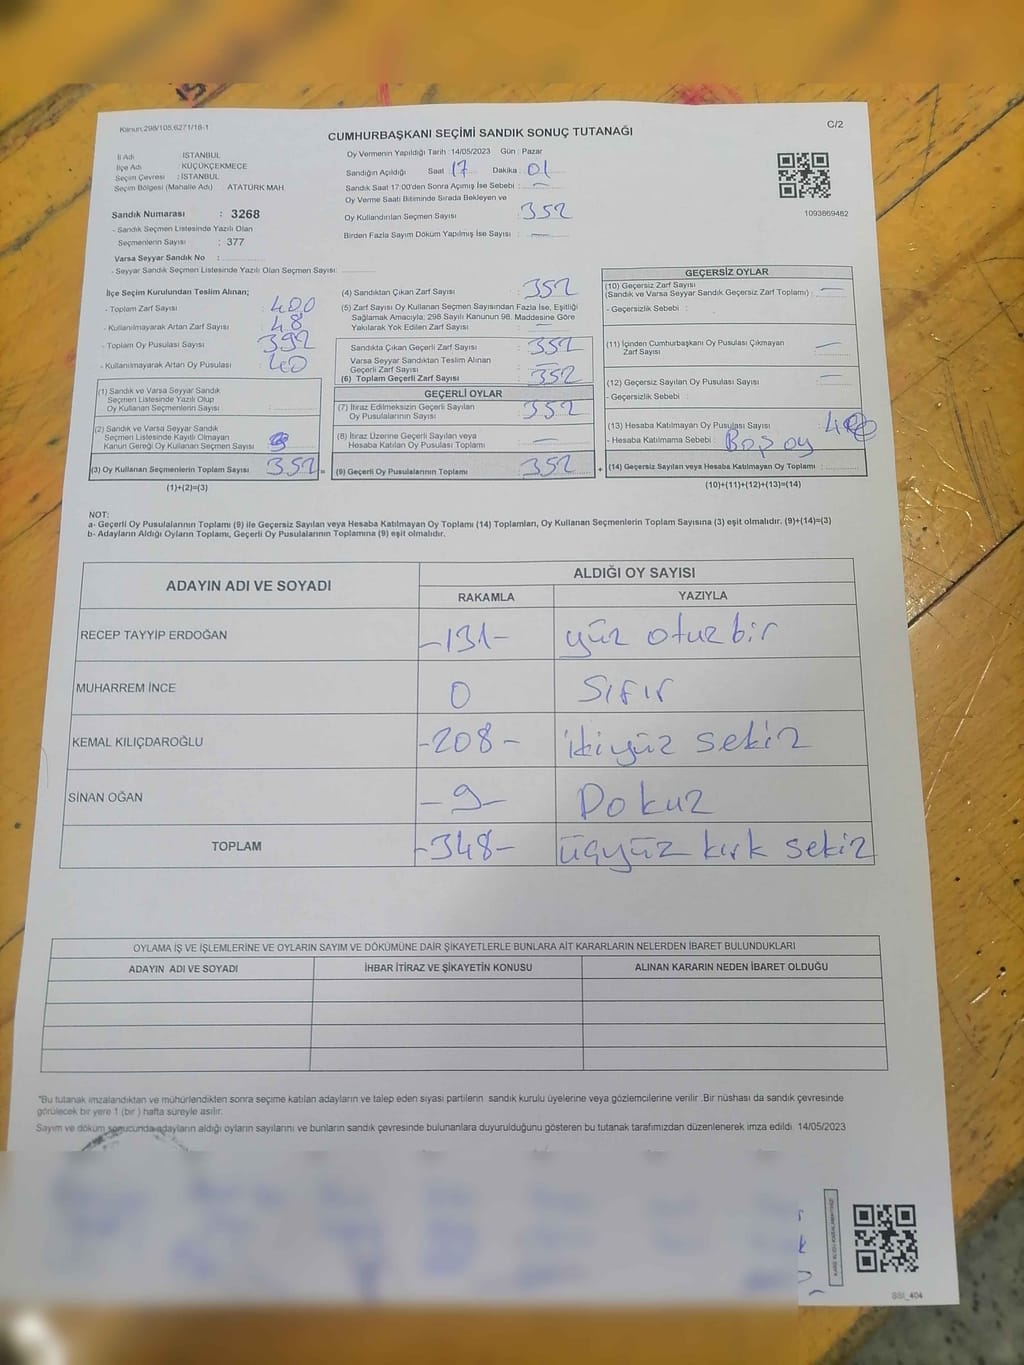 Kanun:298/105,6271/16-1
C/2
CUMHURBAŞKANI SEÇİMİ SANDIK SONUÇ TUTANAĞI
İl Adı : İSTANBUL
İlçe Adı : KÜÇÜKÇEKMECE
Seçim Çevresi : İSTANBUL
Seçim Bölgesi (Mahalle Adı) ATATÜRK MAH
Sandık Numarası : 3268
- Sandık Seçmen Listesinde Yazılı Olan
Seçmenlerin Sayısı : 377
Varsa Seyyar Sandık No :
- Seyyar Sandık Seçmen Listesinde Yazılı Olan Seçmen Sayısı:
Oy Vermenin Yapıldığı Tarih : 14/05/2023 Gün : Pazar
Sandığın Açıldığı Saat 17 Dakika 01
Sandık Saat 17:00'den Sonra Açımış İse Sebebi : —
Oy Verme Saati Bitiminde Sırada Bekleyen ve
Oy Kullandırılan Seçmen Sayısı : 352
Birden Fazla Sayım Döküm Yapılmış İse Sayısı : —
1093869482
İlçe Seçim Kurulundan Teslim Alınan;
- Toplam Zarf Sayısı : 400
- Kullanılmayarak Artan Zarf Sayısı : 48
- Toplam Oy Pusulası Sayısı : 392
- Kullanılmayarak Artan Oy Pusulası : 40
(1) Sandık ve Varsa Seyyar Sandık
Seçmen Listesinde Yazılı Olup
Oy Kullanan Seçmenlerin Sayısı :
(2) Sandık ve Varsa Seyyar Sandık
Seçmen Listesinde Kayıtlı Olmayan
Kanun Gereği Oy Kullanan Seçmen Sayısı
(3) Oy Kullanan Seçmenlerin Toplam Sayısı : 352 =
(1)+(2)=(3)
(4) Sandıktan Çıkan Zarf Sayısı : 352
(5) Zarf Sayısı Oy Kullanan Seçmen Sayısından Fazla İse, Eşitliği
Sağlamak Amacıyla; 298 Sayılı Kanunun 98. Maddesine Göre
Yakılarak Yok Edilen Zarf Sayısı : —
Sandıkta Çıkan Geçerli Zarf Sayısı : 352
Varsa Seyyar Sandıktan Teslim Alınan
Geçerli Zarf Sayısı : —
(6) Toplam Geçerli Zarf Sayısı : 352
GEÇERLİ OYLAR
(7) İtiraz Edilmeksizin Geçerli Sayılan
Oy Pusulalarının Sayısı : 352
(8) İtiraz Üzerine Geçerli Sayılan veya
Hesaba Katılan Oy Pusulası Toplamı : —
(9) Geçerli Oy Pusulalarının Toplamı : 352 +
GEÇERSİZ OYLAR
(10) Geçersiz Zarf Sayısı
(Sandık ve Varsa Seyyar Sandık Geçersiz Zarf Toplamı) : —
- Geçersizlik Sebebi :
(11) İçinden Cumhurbaşkanı Oy Pusulası Çıkmayan
Zarf Sayısı : —
(12) Geçersiz Sayılan Oy Pusulası Sayısı : —
- Geçersizlik Sebebi :
(13) Hesaba Katılmayan Oy Pusulası Sayısı :
- Hesaba Katılmama Sebebi : Boş oy
(14) Geçersiz Sayılan veya Hesaba Katılmayan Oy Toplamı :
(10)+(11)+(12)+(13)=(14)
NOT:
a- Geçerli Oy Pusulalarının Toplamı (9) ile Geçersiz Sayılan veya Hesaba Katılmayan Oy Toplamı (14) Toplamları, Oy Kullanan Seçmenlerin Toplam Sayısına (3) eşit olmalıdır. (9)+(14)=(3)
b- Adayların Aldığı Oyların Toplamı, Geçerli Oy Pusulalarının Toplamına (9) eşit olmalıdır.
ADAYIN ADI VE SOYADI
ALDIĞI OY SAYISI
RAKAMLA YAZIYLA
RECEP TAYYİP ERDOĞAN -131- yüz otuzbir
MUHARREM İNCE 0 Sıfır
KEMAL KILIÇDAROĞLU -208- ikiyüz sekiz
SİNAN OĞAN -9- Dokuz
TOPLAM -348- üçyüz kırk sekiz
OYLAMA İŞ VE İŞLEMLERİNE VE OYLARIN SAYIM VE DÖKÜMÜNE DAİR ŞİKAYETLERLE BUNLARA AİT KARARLARIN NELERDEN İBARET BULUNDUKLARI
ADAYIN ADI VE SOYADI İHBAR İTİRAZ VE ŞİKAYETİN KONUSU ALINAN KARARIN NEDEN İBARET OLDUĞU
"Bu tutanak imzalandıktan ve mühürlendikten sonra seçime katılan adayların ve talep eden siyasi partilerin sandık kurulu üyelerine veya gözlemcilerine verilir .Bir nüshası da sandık çevresinde
görülecek bir yere 1 (bir ) hafta süreyle asılır.
Sayım ve döküm sonucunda adayların aldığı oyların sayılarını ve bunların sandık çevresinde bulunanlara duyurulduğunu gösteren bu tutanak tarafımızdan düzenlenerek imza edildi. 14/05/2023
SSI_404